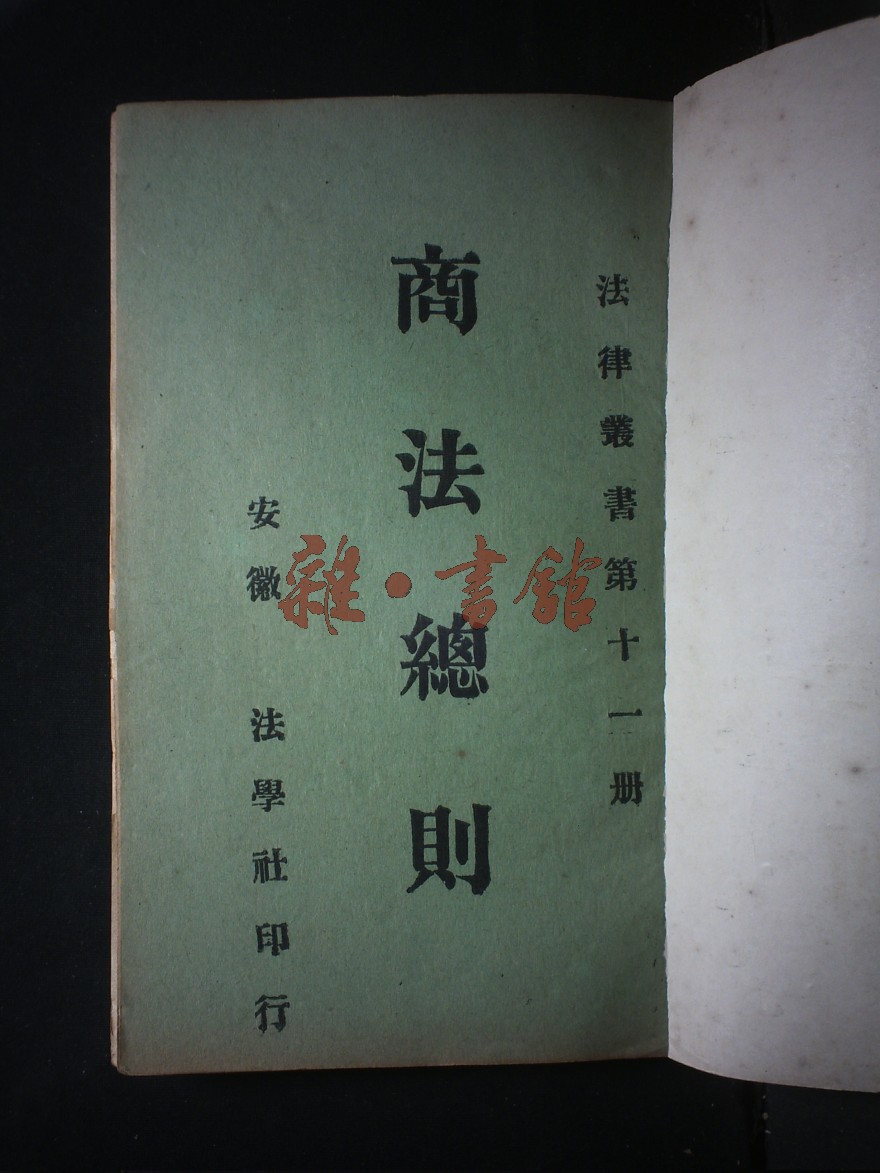 法律叢書第十一册
商法總則
安徽 法學社印行
雜·書館